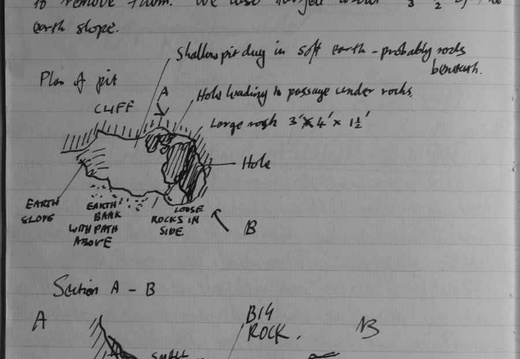 to remove them. We also
earth slope.
Shallow pit dug in soft earth - probably rocks
beneath.
Plan of pit
CLIFF
A
Hole leading to passage under rocks.
Large rock 3' x 4' x 1½'
Hole
EARTH
SLOPE
EARTH
BANK
WITH PATH
ABOVE
LOOSE
ROCKS IN
SIDE.
B
Section A - B
A
BIG
ROCK.
B
SMALL